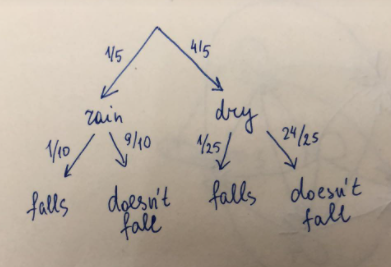 1/5 4/5
rain dry
1/10 9/10 1/25 24/25
falls doesn't falls doesn't
fall fall